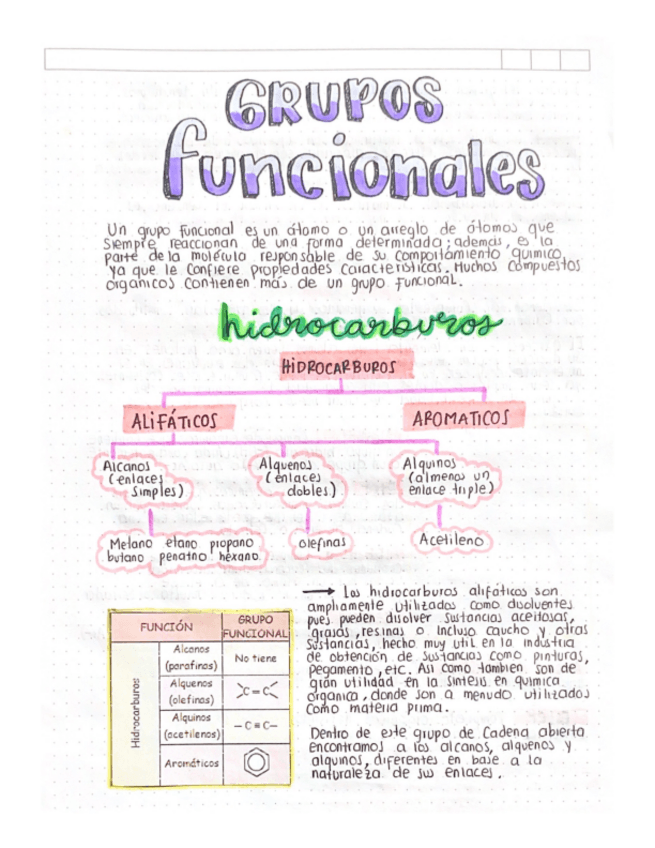 GRUPOS
funcionales
Un grupo funcional es un átomo o un arreglo de átomos que
siempre reaccionan de una forma determinada; además, es la
parte de la molécula responsable de su comportamiento químico
ya que le confiere propiedades características. Muchos compuestos
orgánicos contienen más de un grupo funcional.
hidrocarburos
HIDROCARBUROS
ALIFÁTICOS
AROMATICOS
Alcanos
(enlaces
simples)
Alquenos
(enlaces
dobles)
Alquinos
(almenos un
enlace triple)
Metano etano propano
butano penatno hexano
olefinas
Acetileno
→ Los hidrocarburos alifáticos son
ampliamente utilizados como disolventes
pues pueden disolver sustancias aceitosas,
grasas, resinas o incluso caucho y otras
sustancias, hecho muy util en la industria
de obtención de sustancias como pinturas,
pegamento, etc. Asi como tambien son de
gran utilidad en la sintesis en quimica
organica, donde son a menudo utilizados
como materia prima.
Dentro de este grupo de Cadena abierta
encontramos a los alcanos, alquenos y
alquinos, diferentes en base a la
naturaleza de sus enlaces.
FUNCIÓN
GRUPO
FUNCIONAL
Hidrocarburos
Alcanos
(parafinas)
No tiene
Alquenos
(olefinas)
C=C
Alquinos
(acetilenos)
—C≡C—
Aromáticos